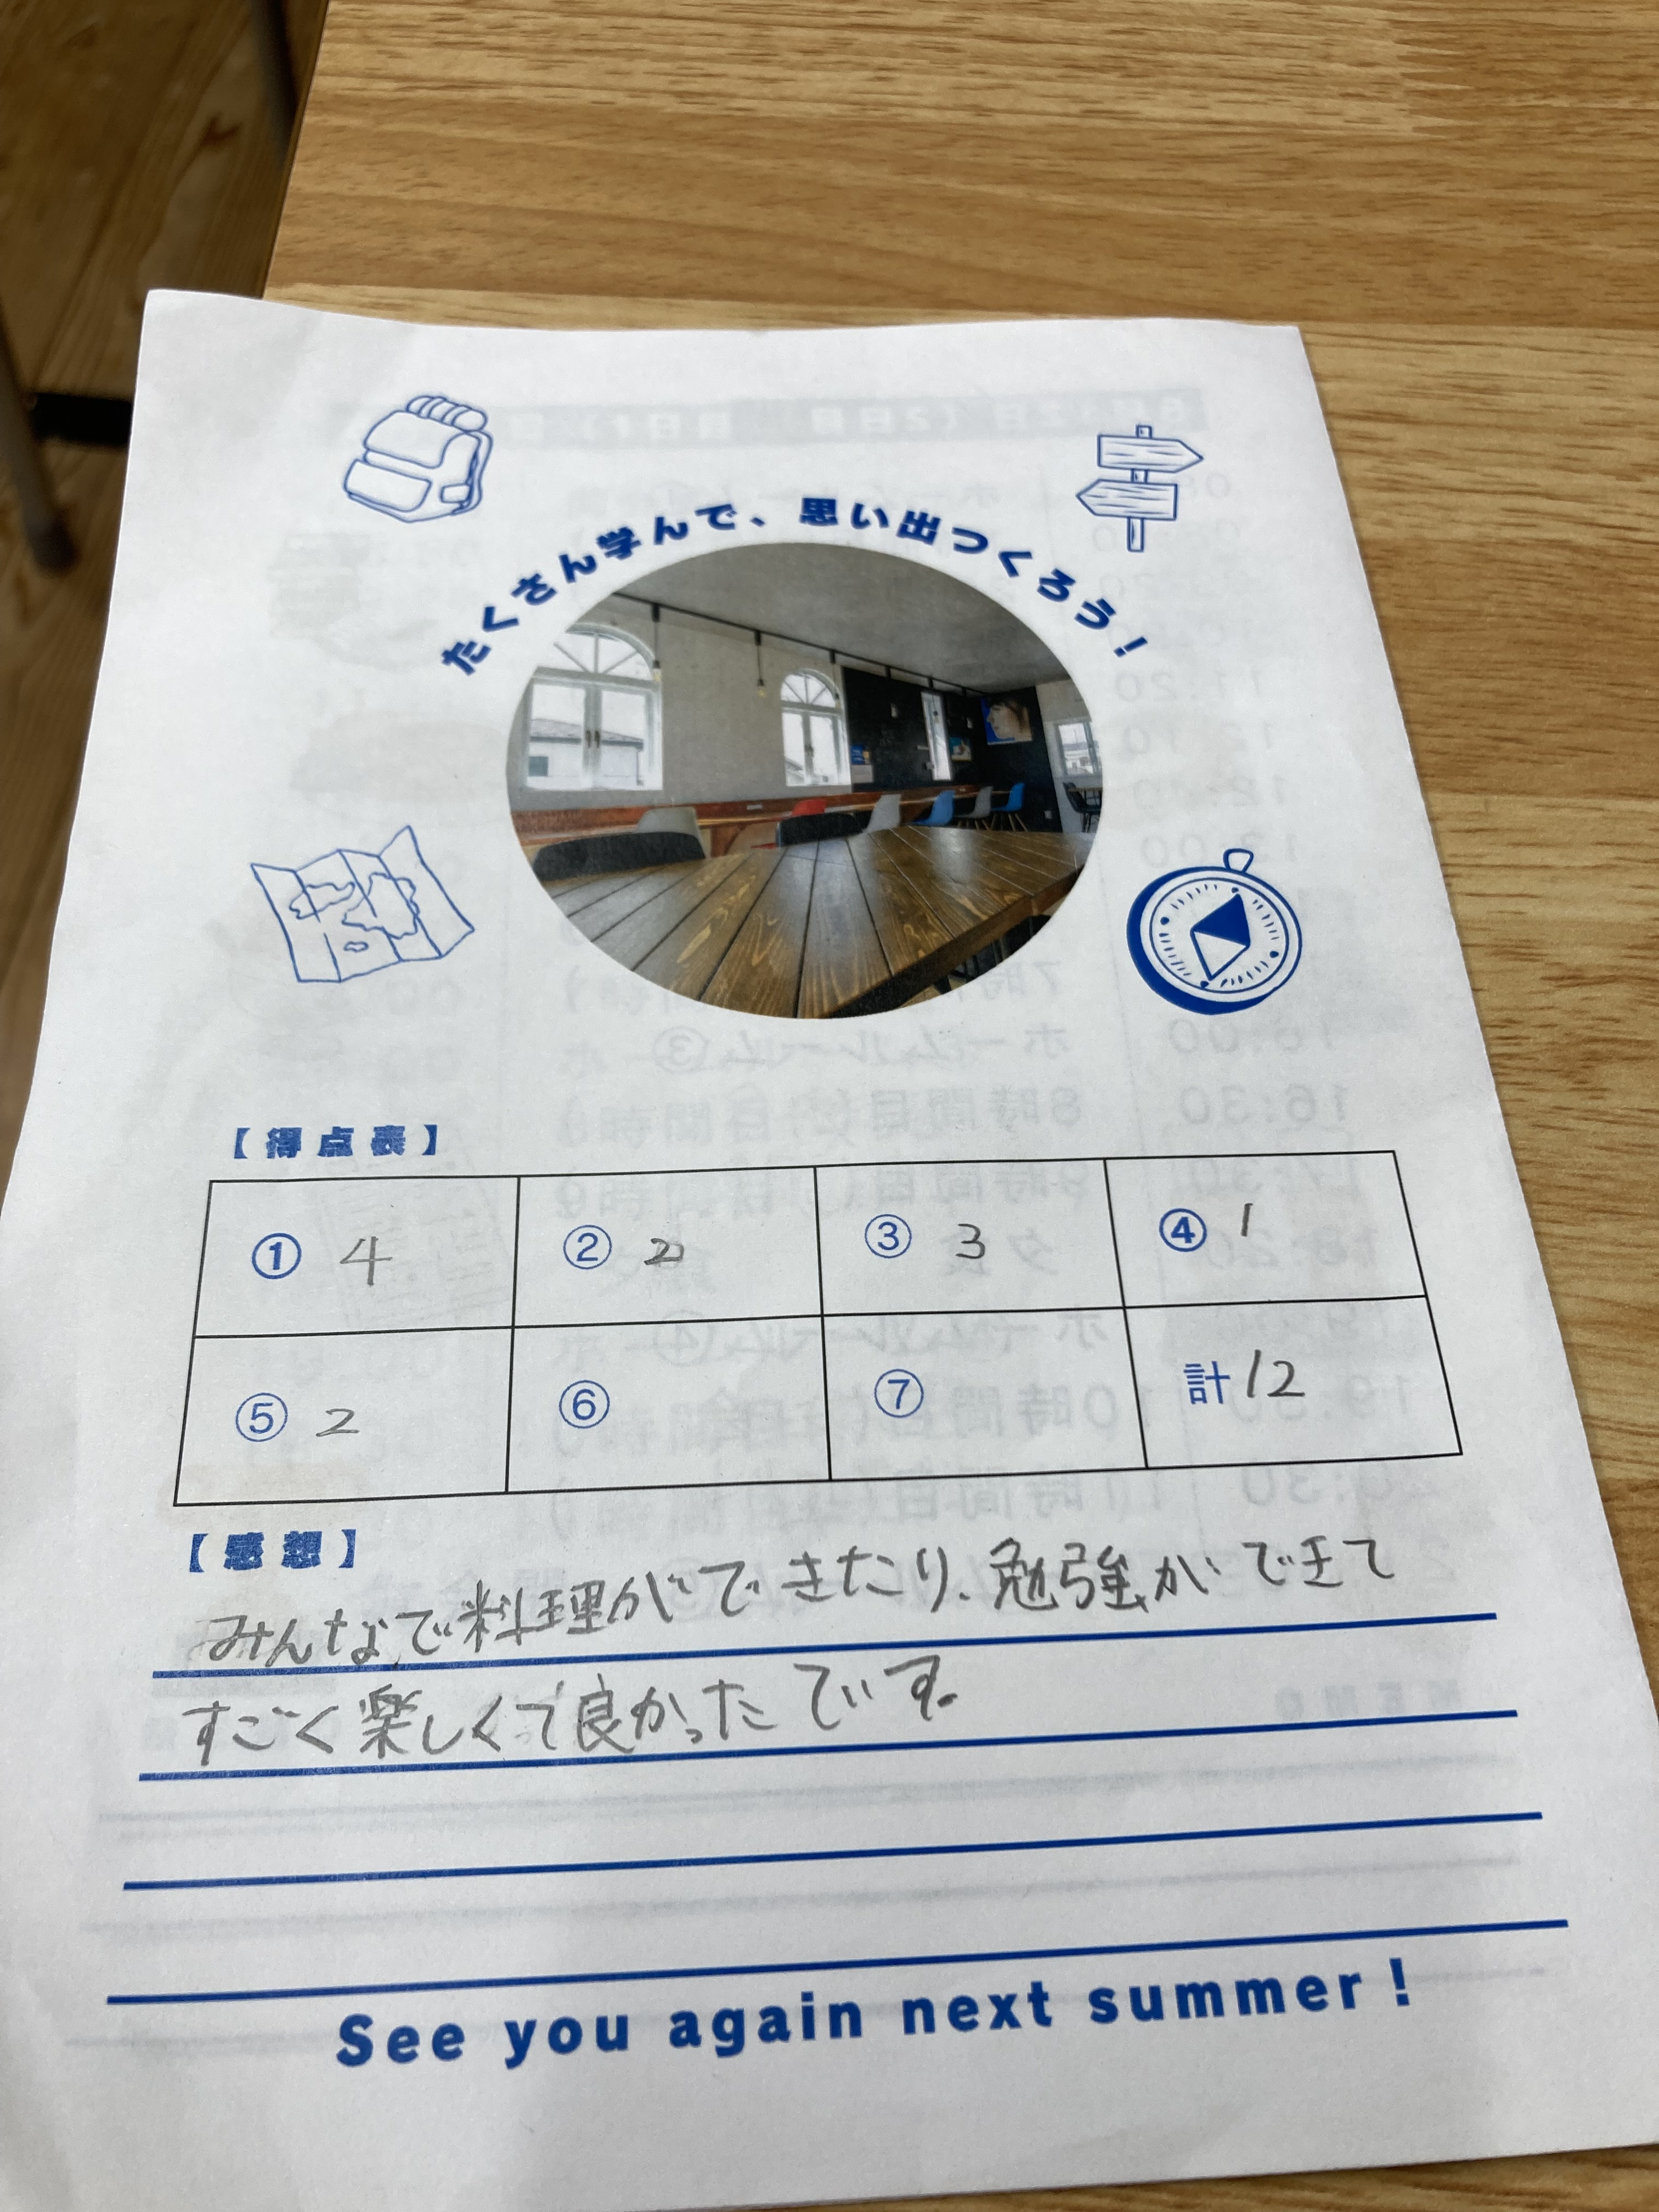 たくさん学んで、思い出つくろう！
【得点表】
① 4 ② 2 ③ 3 ④ 1
⑤ 2 ⑥ ⑦ 計 12
【感想】
みんなで料理ができたり、勉強ができて
すごく楽しくて良かったです。
See you again next summer !